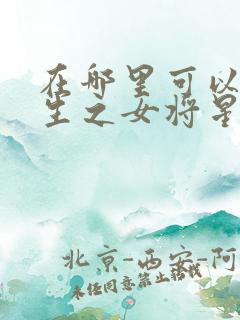 在哪里可以
生之女将星
北京-西安-阿
未经同意禁止转载